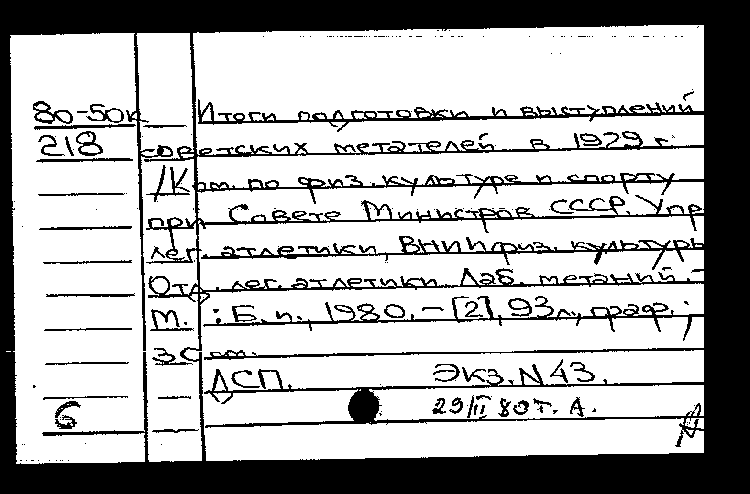 80-50к Итоги подготовки и выступлений
218 советских метателей в 1979 г.
/Ком. по физ. культуре и спорту
при Совете Министров СССР. Упр
лег. атлетики, ВНИИ физ. культуры
Отд. лег. атлетики. Лаб. метаний. -
М. : Б. и., 1980. - [2], 93 л., граф. ;
30 см.
ДСП. Экз. N 43.
б 29/II 80 г. А.